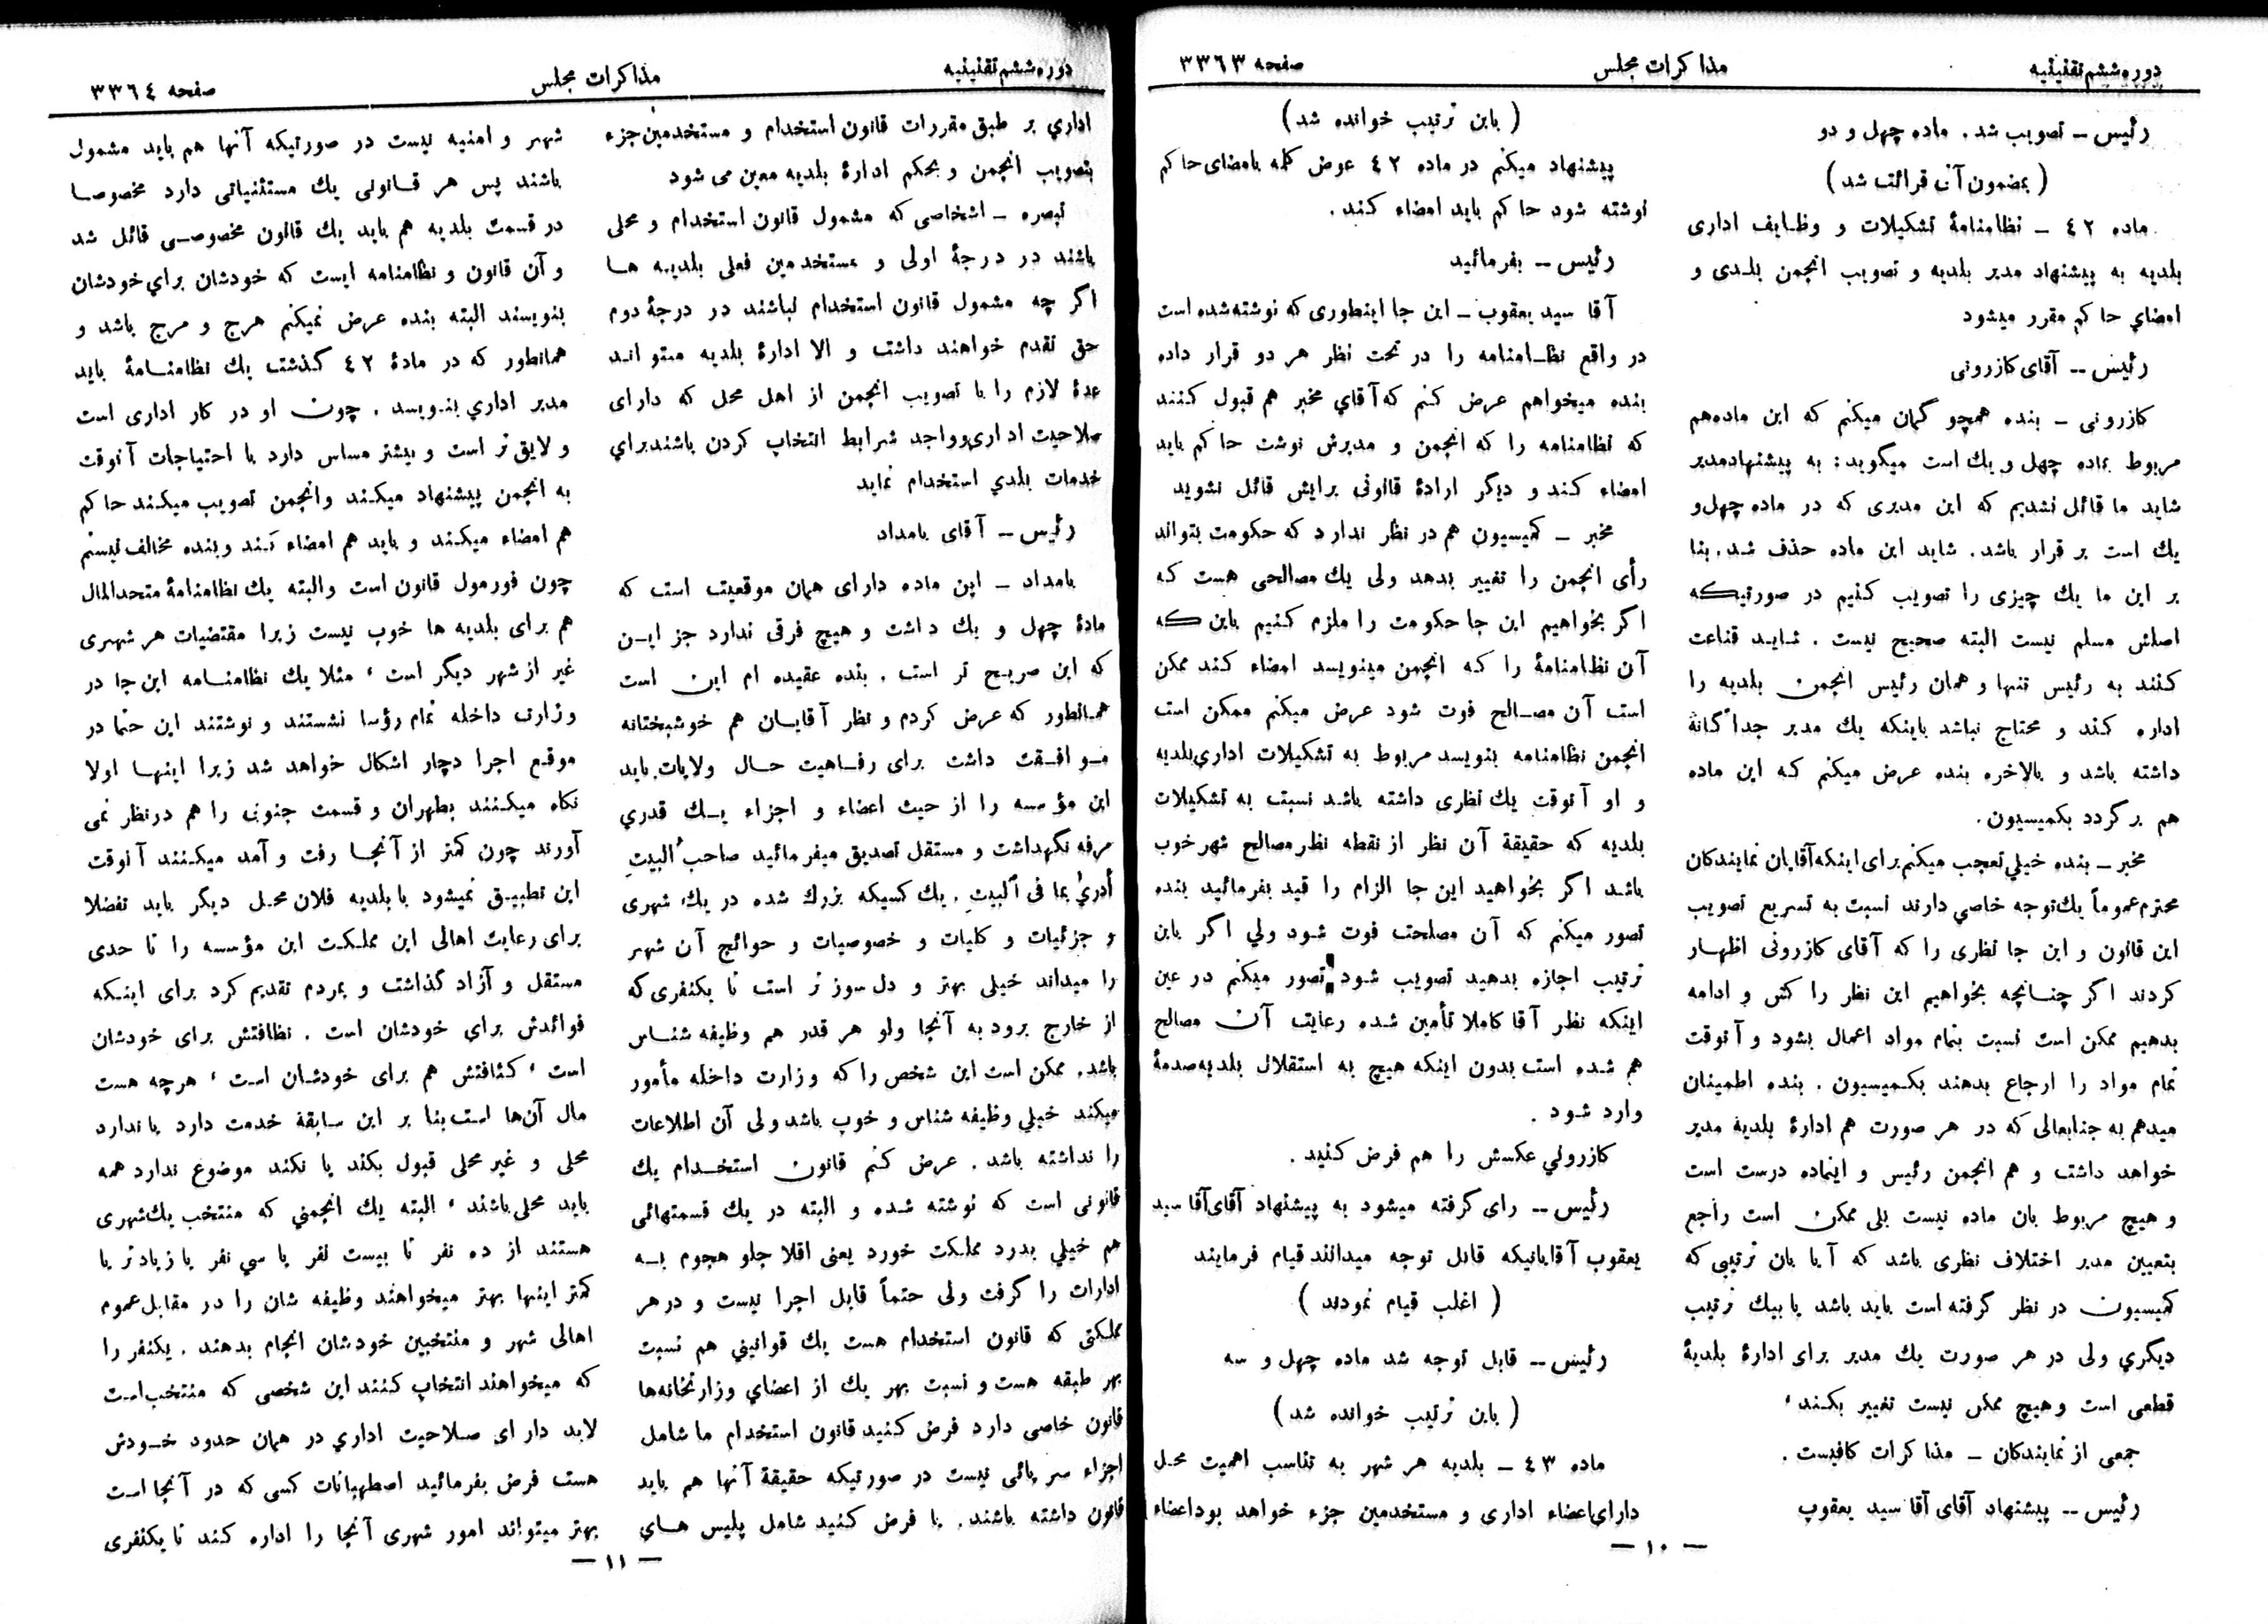 دوره ششم تقنینیه
مذاکرات مجلس
صفحه ۳۳۶۳
رئیس – تصویب شد. ماده چهل و دو
(بمضمون آتی قرائت شد)
ماده ۴۲ – نظامنامهٔ تشکیلات و وظایف اداری
بلدیه به پیشنهاد مدیر بلدیه و تصویب انجمن بلدی و
امضای حاکم مقرر میشود
رئیس – آقای کازرونی
کازرونی – بنده همچو گمان میکنم که این ماده هم
مربوط بماده چهل و یک است میگوید: به پیشنهاد مدیر
شاید ما قائل نشدیم که این مدیری که در ماده چهل و
یک است بر قرار باشد. شاید این ماده حذف شد. بنا
بر این ما یک چیزی را تصویب کنیم در صورتیکه
اصلش مسلم نیست البته صحیح نیست. شاید قناعت
کنند به رئیس تنها و همان رئیس انجمن بلدیه را
اداره کند و محتاج نباشد باینکه یک مدیر جداگانهٔ
داشته باشد و بالاخره بنده عرض میکنم که این ماده
هم برگردد بکمیسیون.
مخبر – بنده خیلی تعجب میکنم برای اینکه آقایان نمایندگان
محترم عموماً یک توجه خاصی دارند نسبت به تسریع تصویب
این قانون و این جا نظری را که آقای کازرونی اظهار
کردند اگر چنانچه بخواهیم این نظر را کش و ادامه
بدهیم ممکن است نسبت بتمام مواد اعمال بشود و آنوقت
تمام مواد را ارجاع بدهند بکمیسیون. بنده اطمینان
میدهم به جنابعالی که در هر صورت هم ادارهٔ بلدیه مدیر
خواهد داشت و هم انجمن رئیس و اینماده درست است
و هیچ مربوط بان ماده نیست بلی ممکن است راجع
بتعیین مدیر اختلاف نظری باشد که آیا بان ترتیبی که
کمیسیون در نظر گرفته است باید باشد یا بیک ترتیب
دیگری ولی در هر صورت یک مدیر برای ادارهٔ بلدیهٔ
قطعی است و هیچ ممکن نیست تغییر بکند،
جمعی از نمایندگان – مذاکرات کافیست.
رئیس – پیشنهاد آقای آقا سید یعقوب
(باین ترتیب خوانده شد)
پیشنهاد میکنم در ماده ۴۲ عوض کلمه بامضای حاکم
نوشته شود حاکم باید امضاء کند.
رئیس – بفرمائید
آقا سید یعقوب – این جا اینطوری که نوشته شده است
در واقع نظامنامه را در تحت نظر هر دو قرار داده
بنده میخواهم عرض کنم که آقای مخبر هم قبول کنند
که نظامنامه را که انجمن و مدیرش نوشت حاکم باید
امضاء کند و دیگر ارادهٔ قانونی برایش قائل نشوید
مخبر – کمیسیون هم در نظر ندارد که حکومت بتواند
رأی انجمن را تغییر بدهد ولی یک مصالحی هست که
اگر بخواهیم این جا حکومت را ملزم کنیم باین که
آن نظامنامهٔ را که انجمن مینویسد امضاء کند ممکن
است آن مصالح فوت شود عرض میکنم ممکن است
انجمن نظامنامه بنویسد مربوط به تشکیلات اداری بلدیه
و او آنوقت یک نظری داشته باشد نسبت به تشکیلات
بلدیه که حقیقة آن نظر از نقطه نظر مصالح شهر خوب
باشد اگر بخواهید این جا الزام را قید بفرمائید بنده
تصور میکنم که آن مصلحت فوت شود ولی اگر باین
ترتیب اجازه بدهید تصویب شود تصور میکنم در عین
اینکه نظر آقا کاملا تأمین شده رعایت آن مصالح
هم شده است بدون اینکه هیچ به استقلال بلدیه صدمهٔ
وارد شود.
کازرونی عکسش را هم فرض کنید.
رئیس – رای گرفته میشود به پیشنهاد آقای آقا سید
یعقوب آقایانیکه قابل توجه میدانند قیام فرمایند
(اغلب قیام نمودند)
رئیس – قابل توجه شد ماده چهل و سه
(باین ترتیب خوانده شد)
ماده ۴۳ – بلدیه هر شهر به تناسب اهمیت محل
دارای اعضاء اداری و مستخدمین جزء خواهد بود اعضاء
– ۱۰ –
دوره ششم تقنینیه
مذاکرات مجلس
صفحه ۳۳۶۴
اداری بر طبق مقررات قانون استخدام و مستخدمین جزء
بتصویب انجمن و بحکم ادارهٔ بلدیه معین می شود
تبصره – اشخاصی که مشمول قانون استخدام و محلی
باشند در درجهٔ اولی و مستخدمین فعلی بلدیه ها
اگر چه مشمول قانون استخدام نباشند در درجهٔ دوم
حق تقدم خواهند داشت و الا ادارهٔ بلدیه میتواند
عدهٔ لازم را با تصویب انجمن از اهل محل که دارای
صلاحیت اداری و واجد شرایط انتخاب کردن باشند برای
خدمات بلدی استخدام نماید
رئیس – آقای بامداد
بامداد – این ماده دارای همان موقعیت است که
مادهٔ چهل و یک داشت و هیچ فرقی ندارد جز این
که این صریح تر است. بنده عقیده ام این است
همانطور که عرض کردم و نظر آقایان هم خوشبختانه
موافقت داشت برای رفاهیت حال ولایات باید
این مؤسسه را از حیث اعضاء و اجزاء یک قدری
مرفه نگهداشت و مستقل تصدیق میفرمائید صاحب البیت
أدری بما فی البیت. یک کسیکه بزرک شده در یک شهری
و جزئیات و کلیات و خصوصیات و حوائج آن شهر
را میداند خیلی بهتر و دل سوز تر است تا یکنفری که
از خارج برود به آنجا ولو هر قدر هم وظیفه شناس
باشد. ممکن است این شخص را که وزارت داخله مأمور
میکند خیلی وظیفه شناس و خوب باشد ولی آن اطلاعات
را نداشته باشد. عرض کنم قانون استخدام یک
قانونی است که نوشته شده و البته در یک قسمتهائی
هم خیلی بدرد مملکت خورد یعنی اقلا جلو هجوم به
ادارات را گرفت ولی حتماً قابل اجرا نیست و در هر
مملکتی که قانون استخدام هست یک قوانینی هم نسبت
بهر طبقه هست و نسبت بهر یک از اعضای وزارتخانه‌ها
قانون خاصی دارد فرض کنید قانون استخدام ما شامل
اجزاء سر پائی نیست در صورتیکه حقیقة آنها هم باید
قانون داشته باشند. یا فرض کنید شامل پلیس های
شهر و امنیه نیست در صورتیکه آنها هم باید مشمول
باشند پس هر قانونی یک مستثنیاتی دارد مخصوصا
در قسمت بلدیه هم باید یک قانون مخصوصی قائل شد
و آن قانون و نظامنامه ایست که خودشان برای خودشان
بنویسند البته بنده عرض نمیکنم هرج و مرج باشد و
همانطور که در مادهٔ ۴۲ گذشت یک نظامنامهٔ باید
مدیر اداری بنویسد. چون او در کار اداری است
و لایق تر است و بیشتر مساس دارد با احتیاجات آنوقت
به انجمن پیشنهاد میکند و انجمن تصویب میکند حاکم
هم امضاء میکند و باید هم امضاء کند و بنده مخالف نیستم
چون فورمول قانون است والبته یک نظامنامهٔ متحدالمال
هم برای بلدیه ها خوب نیست زیرا مقتضیات هر شهری
غیر از شهر دیگر است، مثلا یک نظامنامه این جا در
وزارت داخله تمام رؤسا نشستند و نوشتند این حتما در
موقع اجرا دچار اشکال خواهد شد زیرا اینها اولا
نگاه میکنند بطهران و قسمت جنوبی را هم در نظر نمی
آورند چون کمتر از آنجا رفت و آمد میکنند آنوقت
این تطبیق نمیشود با بلدیه فلان محل دیگر باید تفضلا
برای رعایت اهالی این مملکت این مؤسسه را تا حدی
مستقل و آزاد گذاشت و بمردم تقدیم کرد برای اینکه
فوائدش برای خودشان است. نظافتش برای خودشان
است، کثافتش هم برای خودشان است، هرچه هست
مال آن‌ها است بنا بر این سابقهٔ خدمت دارد یا ندارد
محلی و غیر محلی قبول بکند یا نکند موضوع ندارد همه
باید محلی باشند، البته یک انجمنی که منتخب یک شهری
هستند از ده نفر تا بیست نفر یا سی نفر یا زیادتر یا
کمتر اینها بهتر میخواهند وظیفه شان را در مقابل عموم
اهالی شهر و منتخبین خودشان انجام بدهند. یکنفر را
که میخواهند انتخاب کنند این شخصی که منتخب است
لابد دارای صلاحیت اداری در همان حدود خودش
هست فرض بفرمائید اصطهبانات کسی که در آنجا است
بهتر میتواند امور شهری آنجا را اداره کند تا یکنفری
– ۱۱ –